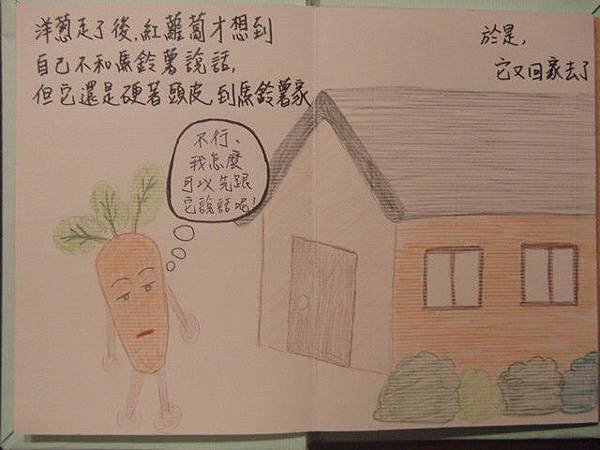 洋蔥走了後,紅蘿蔔才想到
自己不和馬鈴薯說話,
但它還是硬著頭皮,到馬鈴薯家
不行、
我怎麼
可以先跟
它說話呢!
於是,
它又回家去了